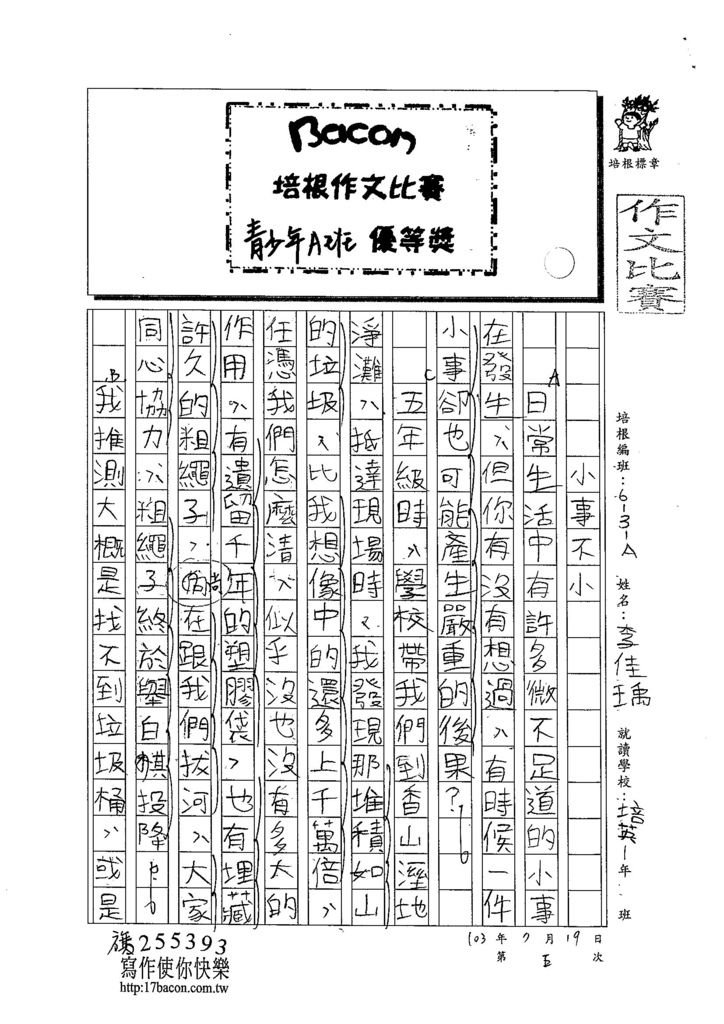 Bacon
培根作文比賽
青少年A班 優等獎
培根標章
作文比賽
培根編班：6-3-A 姓名：李佳瑀 就讀學校：培英一年 班
小事不小
A
日常生活中有許多微不足道的小事
在發生，但你有沒有想過，有時候一件
小事卻也可能產生嚴重的後果？
C
五年級時，學校帶我們到香山溼地
淨灘，抵達現場時，我發現那堆積如山
的垃圾，比我想像中的還多上千萬倍，
任憑我們怎麼清，似乎沒也沒有多大的
作用，有遺留千年的塑膠袋，也有埋藏
許久的粗繩子，尚在跟我們拔河，大家
同心協力，粗繩子終於舉白棋投降。
B
我推測大概是找不到垃圾桶，或是
103年7月19日
第五次
255393
寫作使你快樂
http:17bacon.com.tw